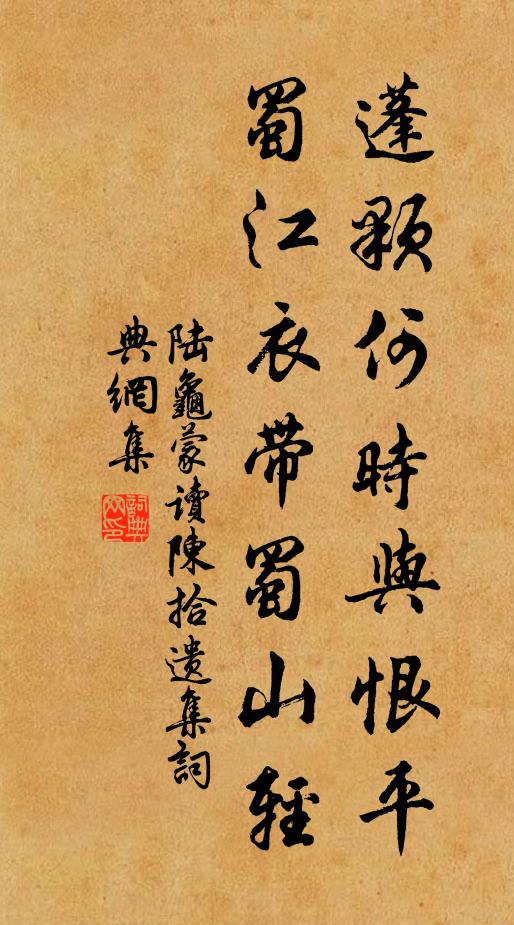 蓬顆何時與恨平
蜀江衣帶蜀山輕
陸龜蒙讀陳拾遺集詞
典網集
詞典
網印